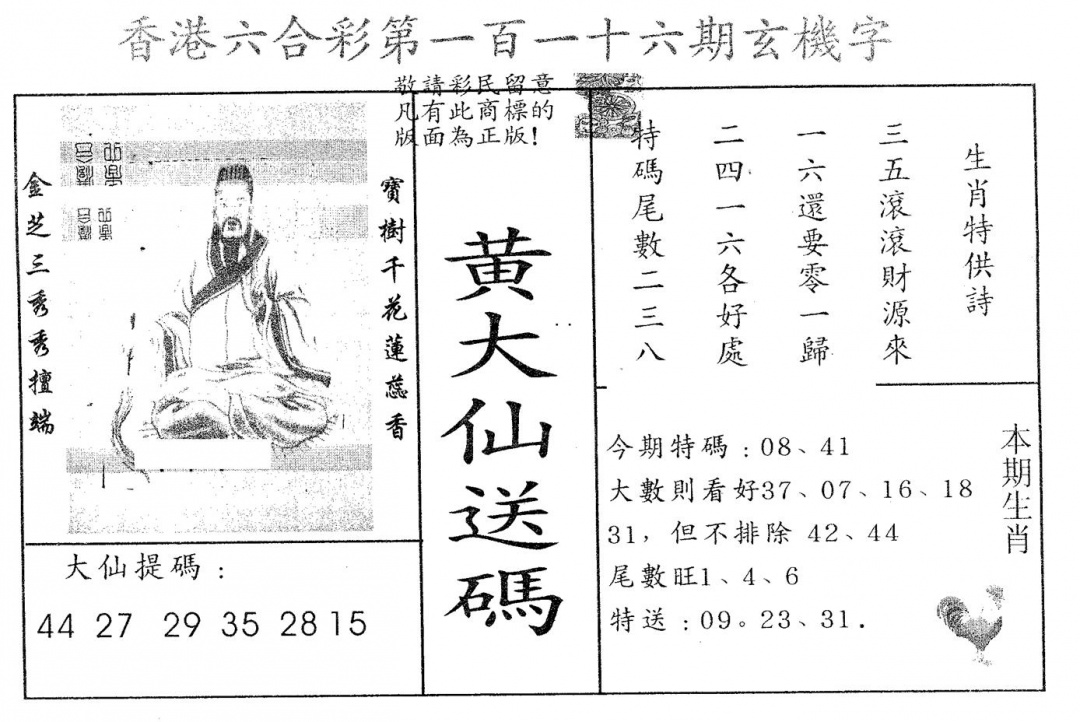 香港六合彩第一百一十六期玄機字
敬請彩民留意
凡有此商標的
版面為正版!
寶樹千花蓮蕊香
金芝三秀秀擅端
大仙提碼：
44 27 29 35 28 15
黃大仙送碼
生肖特供詩
三五滾滾財源來
一六還要零一歸
二四一六各好處
特碼尾數二三八
今期特碼：08、41
大數則看好37、07、16、18
31，但不排除 42、44
尾數旺1、4、6
特送：09。23、31.
本期生肖